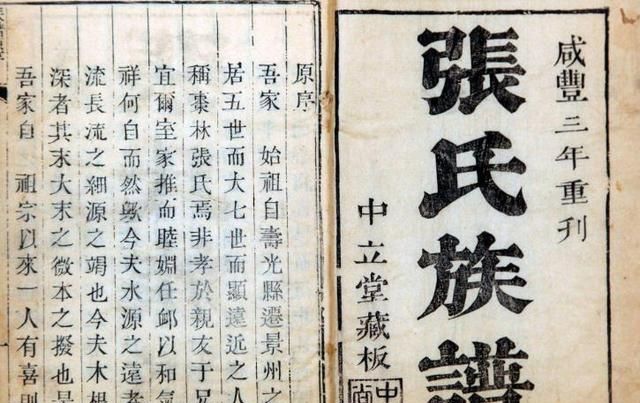 咸豐三年重刊
張氏族譜
中立堂藏板
原序
吾家 始祖自壽光縣遷景州之
居五世而大七世而顯遠近之人
稱棗林張氏焉非孝於親友于兄
宜爾室家推而睦婣任䘏以和氣
祥何自而然歟今夫水源之遠者
流長流之細源之竭也今夫木根
深者其末大末之微本之撥也是
吾家自 祖宗以來一人有喜則